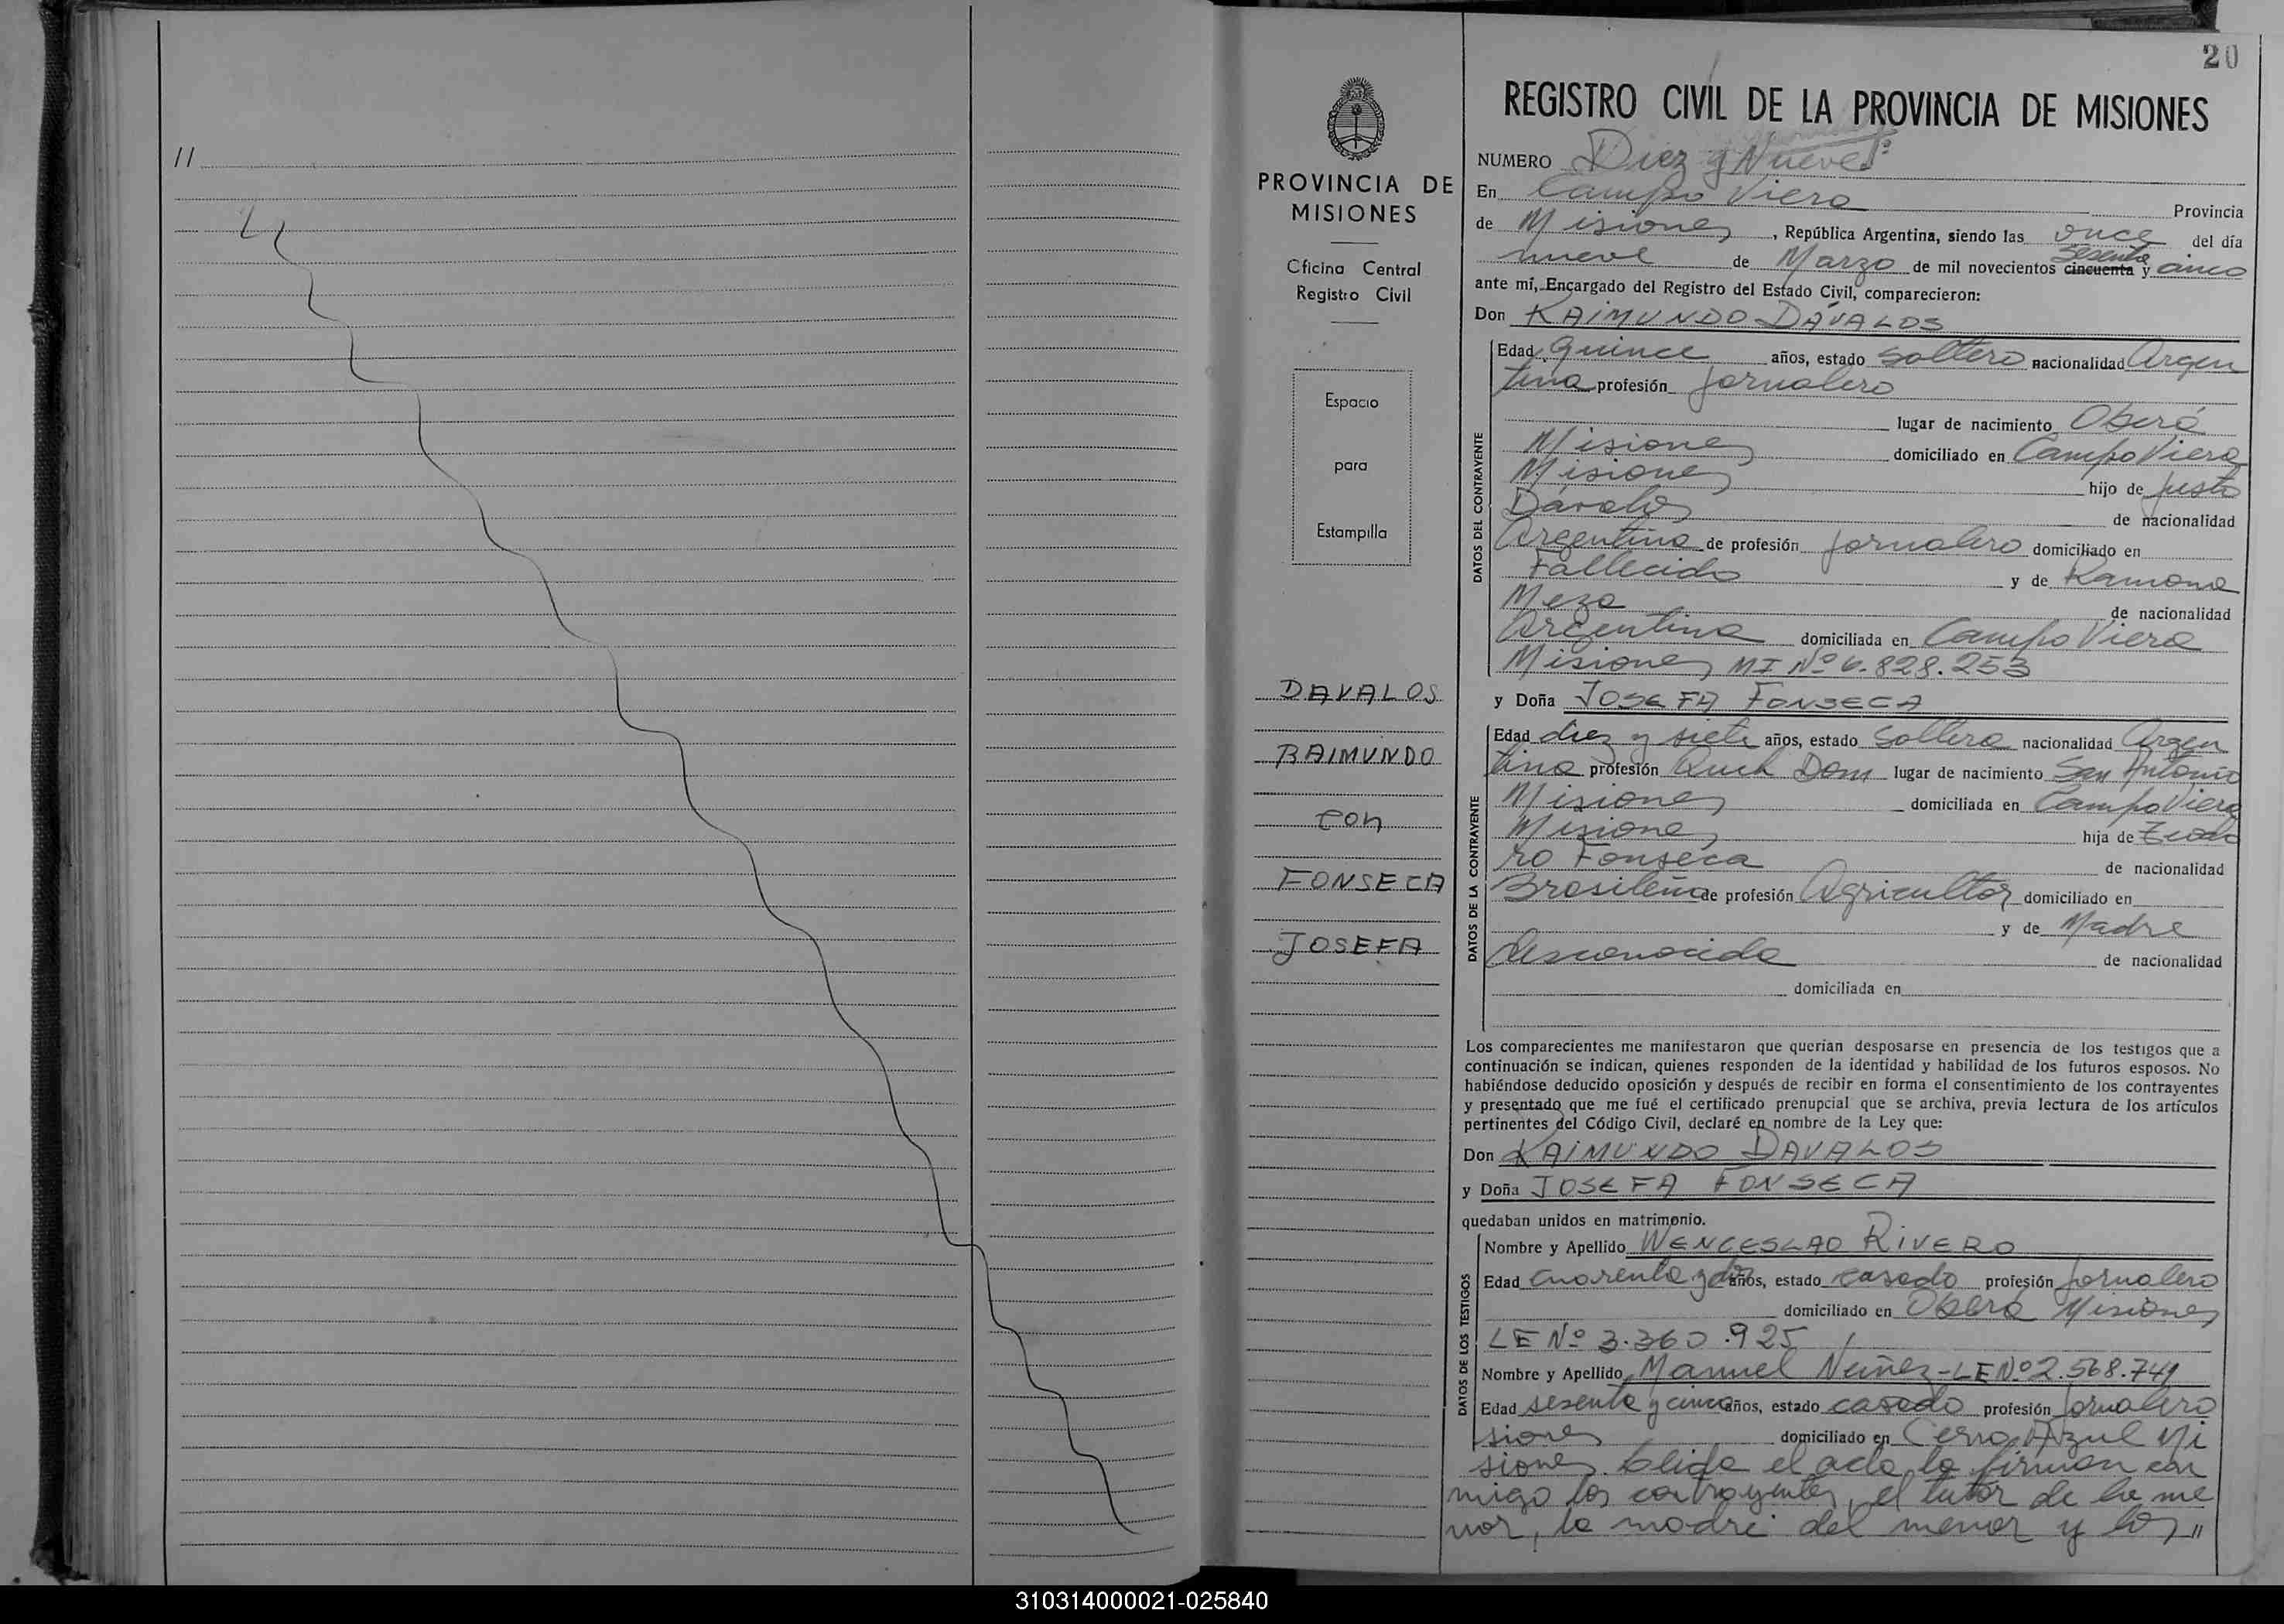 //
20
PROVINCIA DE
MISIONES
Oficina Central
Registro Civil
Espacio
para
Estampilla
DAVALOS
RAIMUNDO
con
FONSECA
JOSEFA
REGISTRO CIVIL DE LA PROVINCIA DE MISIONES
NUMERO Diez y Nueve
En Campo Viera Provincia
de Misiones, República Argentina, siendo las once del día
nueve de Marzo de mil novecientos cincuenta sesenta y cinco
ante mí, Encargado del Registro del Estado Civil, comparecieron:
Don RAIMUNDO DÁVALOS
DATOS DEL CONTRAYENTE
Edad Quince años, estado soltero nacionalidad Argen
tina profesión Jornalero
lugar de nacimiento Oberá
Misiones domiciliado en Campo Viera
Misiones hijo de Justo
Dávalos de nacionalidad
Argentina de profesión Jornalero domiciliado en
Fallecido y de Ramona
Meza de nacionalidad
Argentina domiciliada en Campo Viera
Misiones MI Nº 6.828.253
y Doña JOSEFA FONSECA
DATOS DE LA CONTRAYENTE
Edad diez y siete años, estado Soltera nacionalidad Argen
tina profesión Dom lugar de nacimiento San Antonio
Misiones domiciliada en Campo Viera
Misiones hija de
ro Fonseca de nacionalidad
Brasileña de profesión Agricultor domiciliado en
y de Madre
desconocida de nacionalidad
domiciliada en
Los comparecientes me manifestaron que querían desposarse en presencia de los testigos que a
continuación se indican, quienes responden de la identidad y habilidad de los futuros esposos. No
habiéndose deducido oposición y después de recibir en forma el consentimiento de los contrayentes
y presentado que me fué el certificado prenupcial que se archiva, previa lectura de los artículos
pertinentes del Código Civil, declaré en nombre de la Ley que:
Don RAIMUNDO DAVALOS
y Doña JOSEFA FONSECA
quedaban unidos en matrimonio.
DATOS DE LOS TESTIGOS
Nombre y Apellido WENCESLAO RIVERO
Edad Cuarenta y dos años, estado casado profesión Jornalero
domiciliado en Oberá Misiones
LE Nº 3.360.925
Nombre y Apellido Manuel Nuñez - LE Nº 2.568.741
Edad sesenta y cinco años, estado casado profesión Jornalero
siones domiciliado en Cerro Azul Mi
siones. Leida el acta la firman con
migo los contrayentes, el tutor de la me
nor, la madre del menor y los //
310314000021-025840